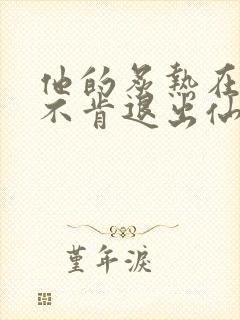 他的炙热在
不肯退出仙
堇年淚